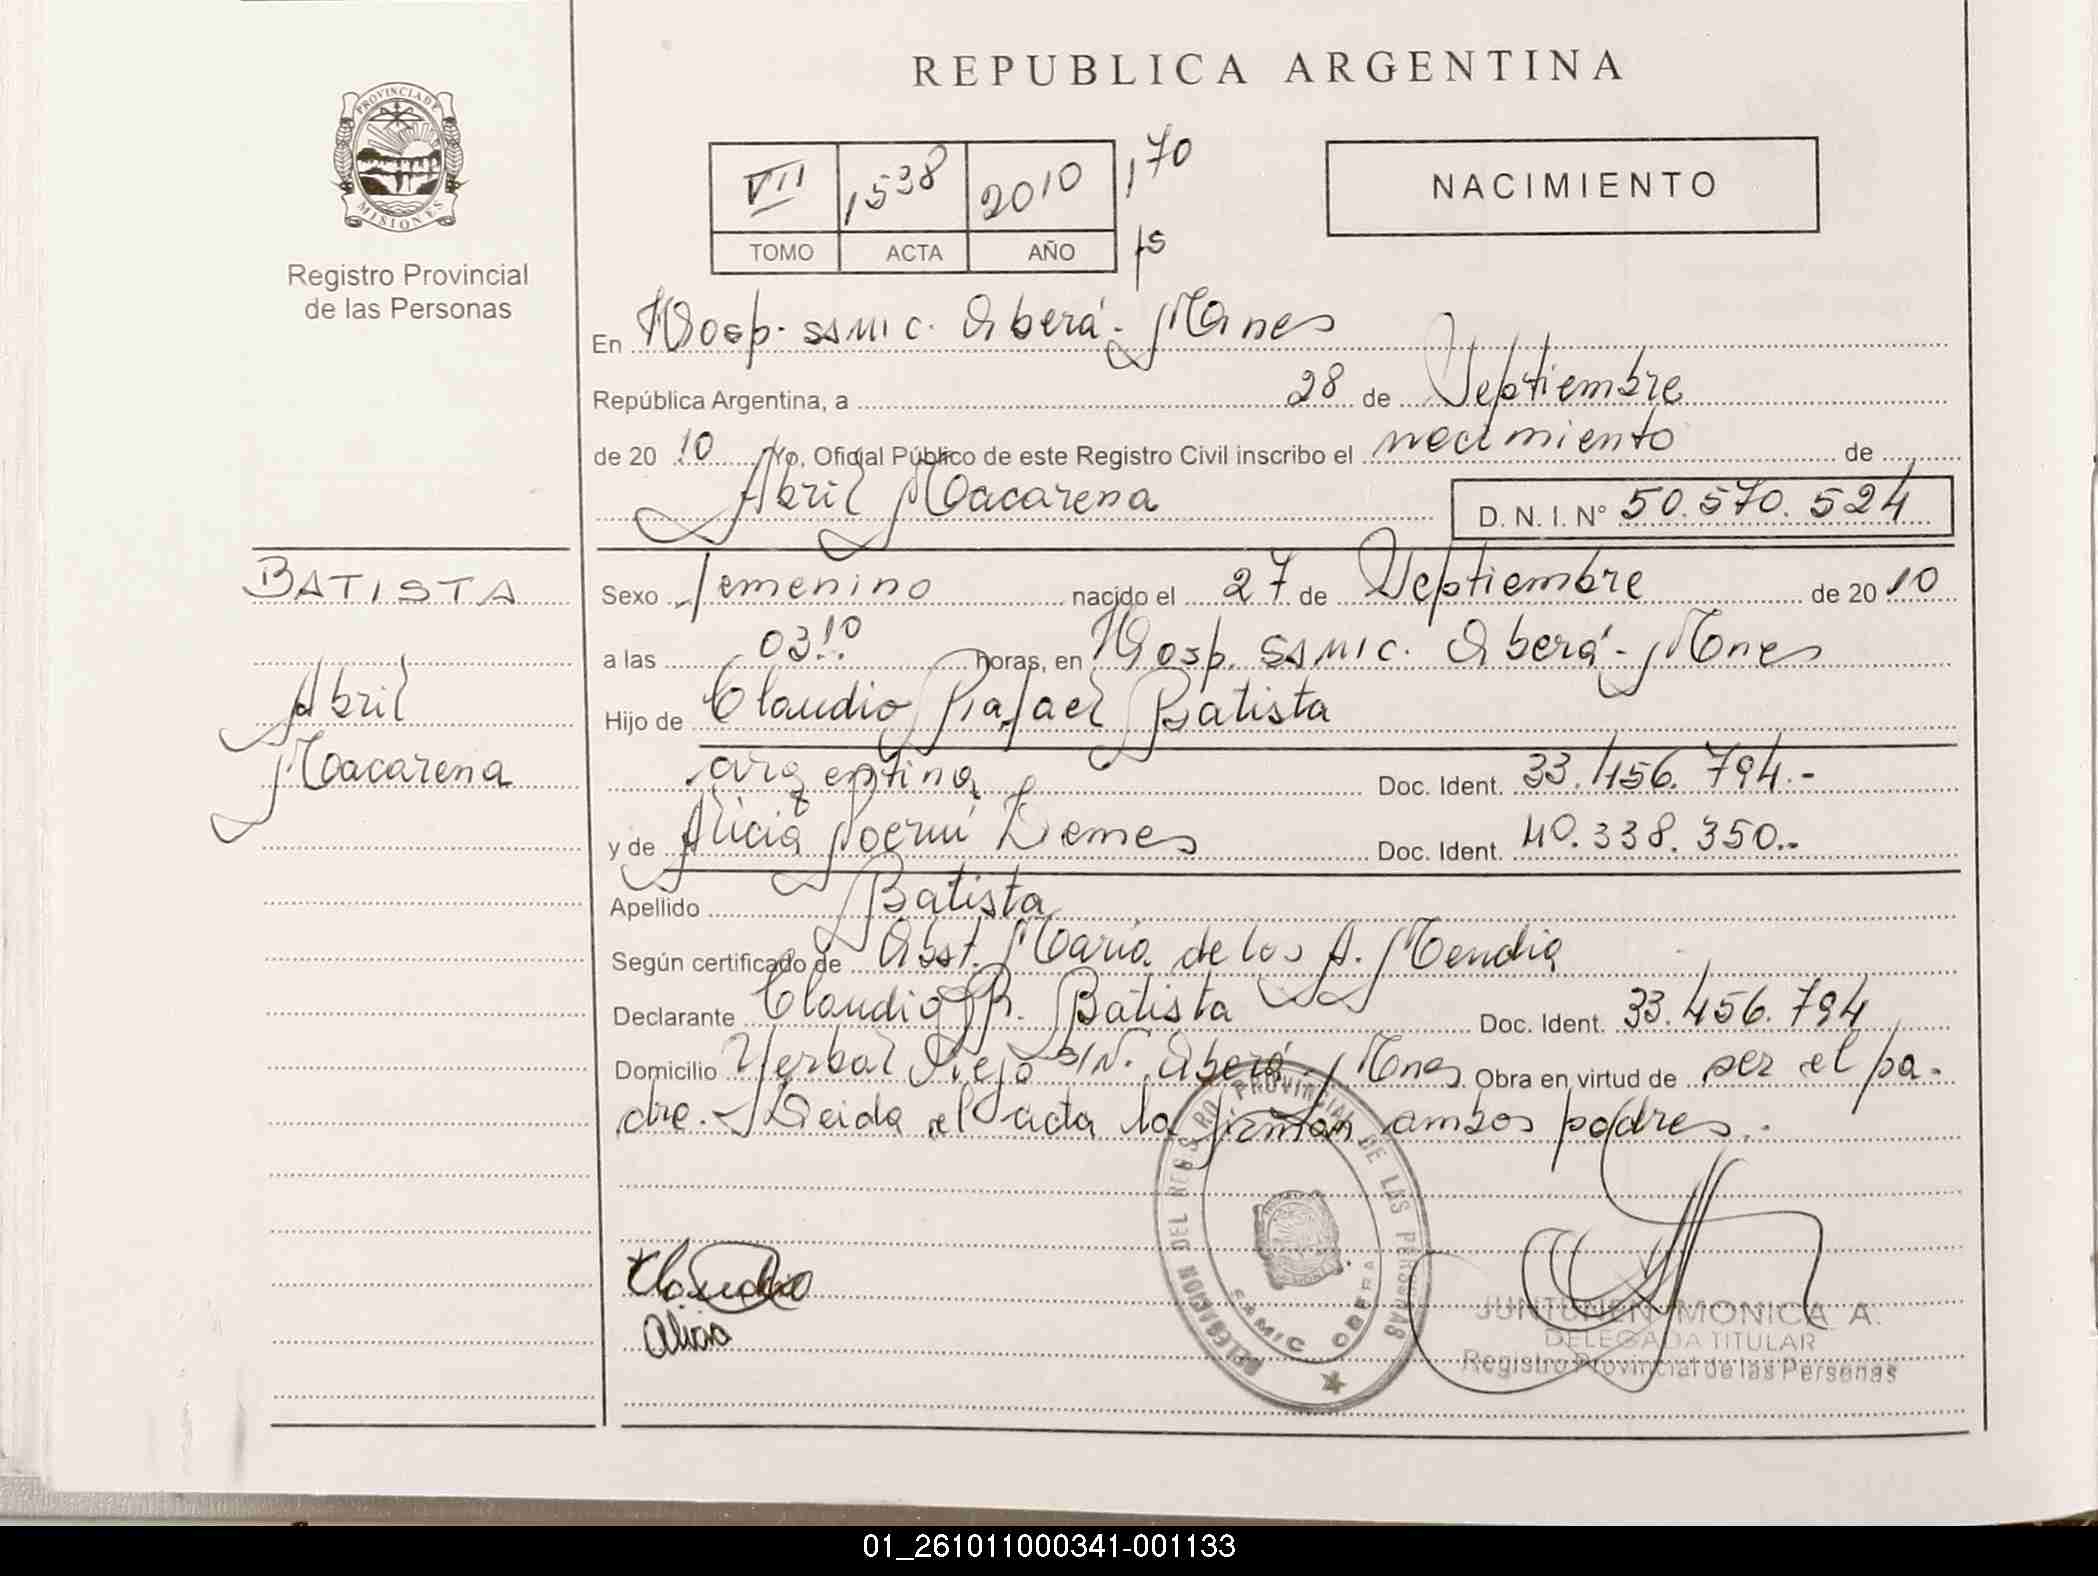 REPUBLICA ARGENTINA
PROVINCIA DE MISIONES
Registro Provincial
de las Personas
VII 1538 2010 170
TOMO ACTA AÑO fs
NACIMIENTO
En Hosp. SAMIC. Oberá - Mnes
República Argentina, a 28 de Septiembre
de 2010 Yo, Oficial Público de este Registro Civil inscribo el nacimiento de
Abril Macarena D. N. I. N° 50.570.524
BATISTA
Abril
Macarena
Sexo femenino nacido el 27 de Septiembre de 2010
a las 03:10 horas, en Hosp. SAMIC. Oberá - Mnes
Hijo de Claudio Rafael Batista
argentina Doc. Ident. 33.456.794.-
y de Alicia Noemí Demes Doc. Ident. 40.338.350.-
Apellido Batista
Según certificado de Obst. María de los A. Mendia
Declarante Claudio R. Batista Doc. Ident. 33.456.794
Domicilio Yerbal Viejo S/N. Oberá - Mnes Obra en virtud de ser el pa-
dre. - Leida el acta la firman ambos padres.-
Claudio
Alicia
DELEGACION DEL REGISTRO PROVINCIAL DE LAS PERSONAS
SAMIC OBERA
JUNTUNEN MONICA A.
DELEGADA TITULAR
Registro Provincial de las Personas
01_261011000341-001133